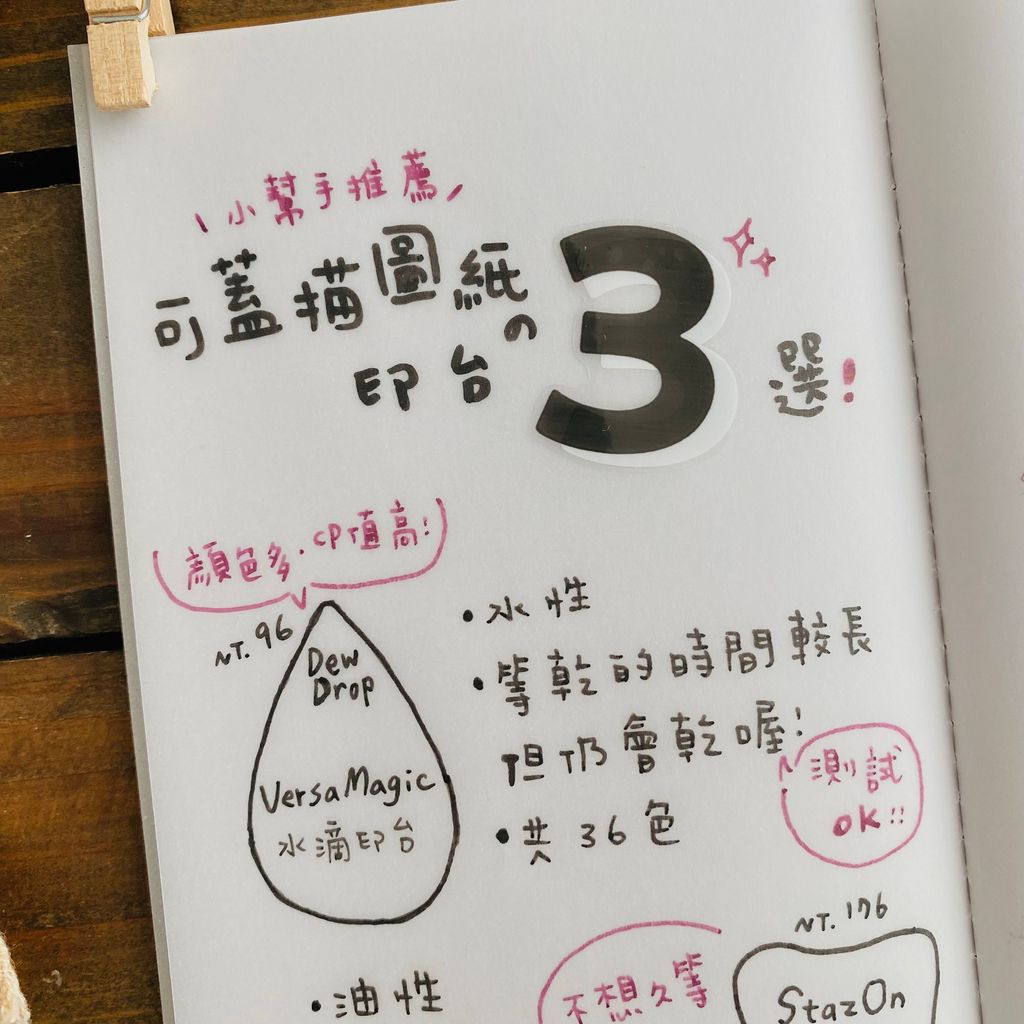 小幫手推薦
可蓋描圖紙の
印台
3
選!
顏色多.CP值高!
NT.96
Dew
Drop
VersaMagic
水滴印台
•水性
•等乾的時間較長
但仍會乾喔!
•共36色
測試
OK!!
NT.176
StazOn
不想久等
•油性